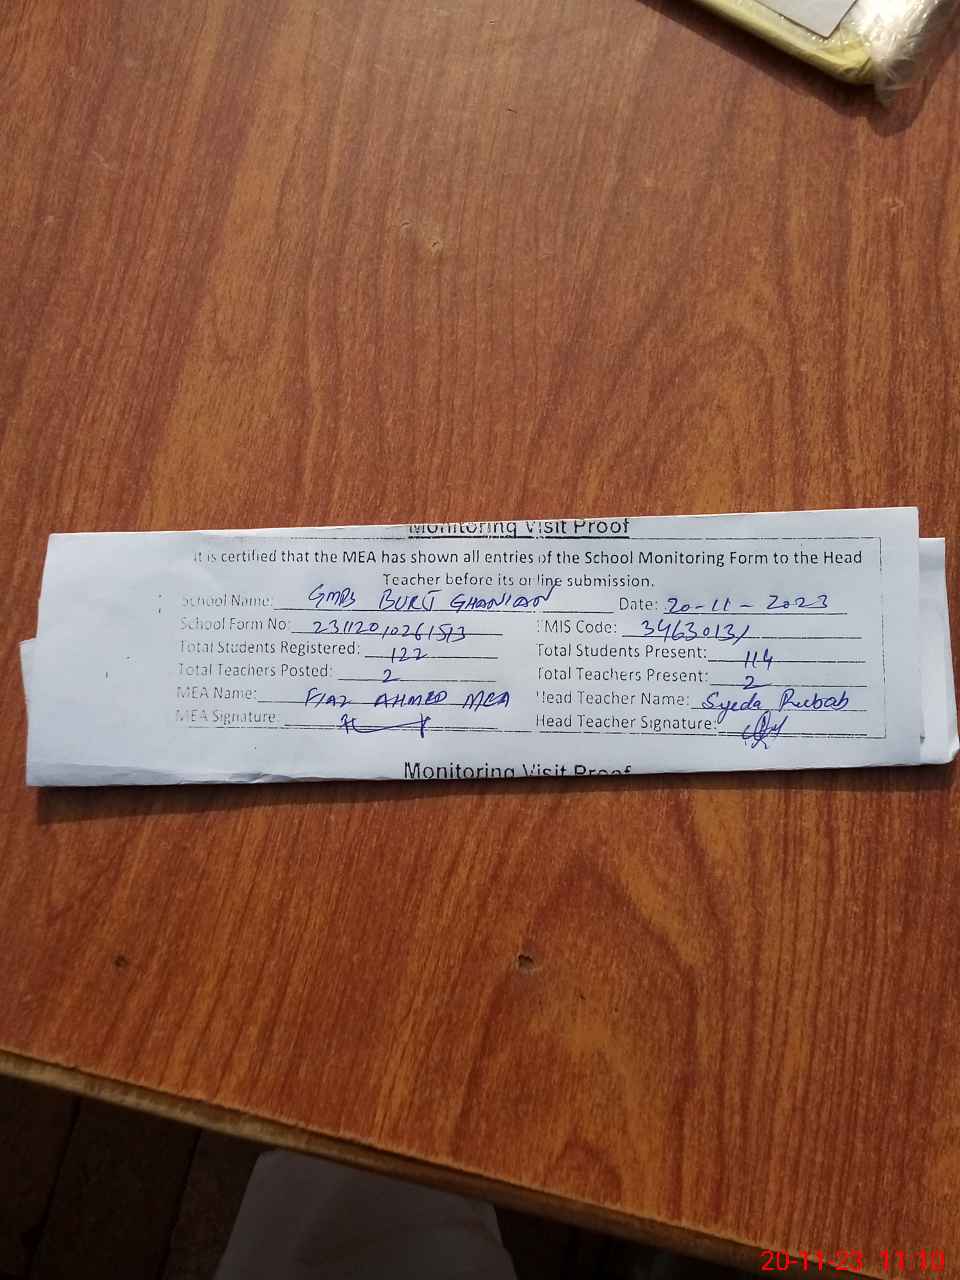 Monitoring Visit Proof
It is certified that the MEA has shown all entries of the School Monitoring Form to the Head
Teacher before its online submission.
School Name: GMPS BURJ GHANIAN Date: 20-11-2023
School Form No: 23112010261513 EMIS Code: 34630131
Total Students Registered: 122 Total Students Present: 114
Total Teachers Posted: 2 Total Teachers Present: 2
MEA Name: FIAZ AHMED MEA Head Teacher Name: Syeda Rubab
MEA Signature: Head Teacher Signature:
Monitoring Visit Proof
20-11-23 11:10